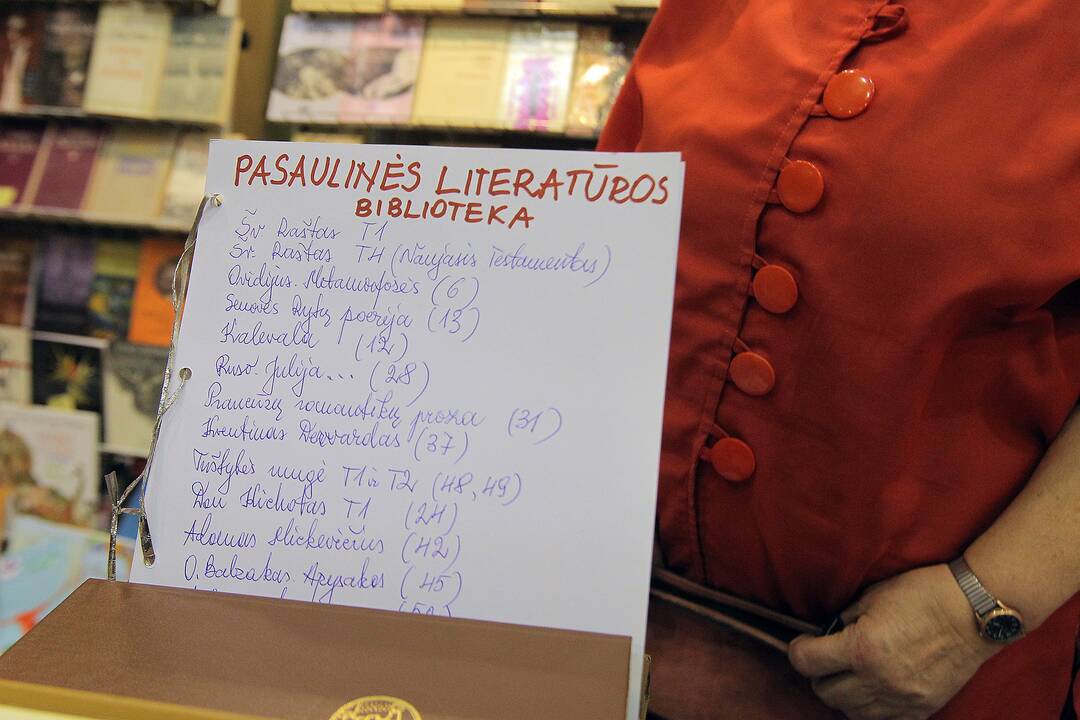 PASAULINĖS LITERATŪROS
BIBLIOTEKA
Šv Raštas T1
Šv. Raštas T4 (Naujasis Testamentas)
Ovidijus. Metamorfozės (6)
Senovės Rytų poezija (13)
Kalevala (12)
Ruso. Julija... (28)
Prancūzų romantikų proza (31)
Kventinas Dorvardas (37)
Tuštybės mugė T1 ir T2 (48, 49)
Don Kichotas T1 (24)
Adomas Mickevičius (42)
O. Balzakas. Apysakos (45)